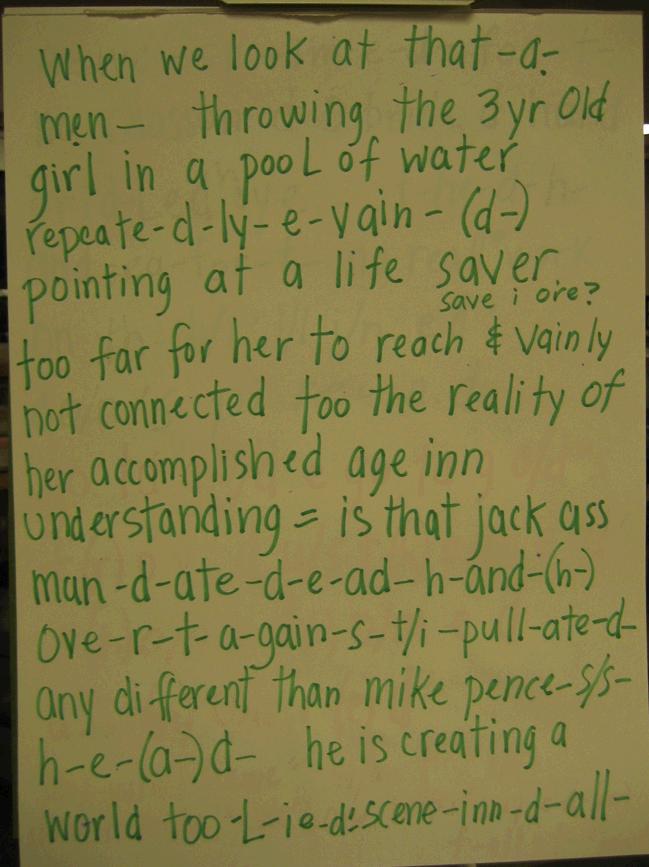 When we look at that-a-
men- throwing the 3yr Old
girl in a pooL of water
repeate-d-ly-e-vain-(d-)
pointing at a life saver
save i ore?
too far for her to reach & vainly
not connected too the reality of
her accomplished age inn
understanding = is that jack ass
man-d-ate-d-e-ad-h-and-(h-)
ove-r-t-a-gain-s-t/i-pull-ate-d-
any different than mike pence-s/s-
h-e-(a-)d- he is creating a
world too-L-ie-d:scene-inn-d-all-